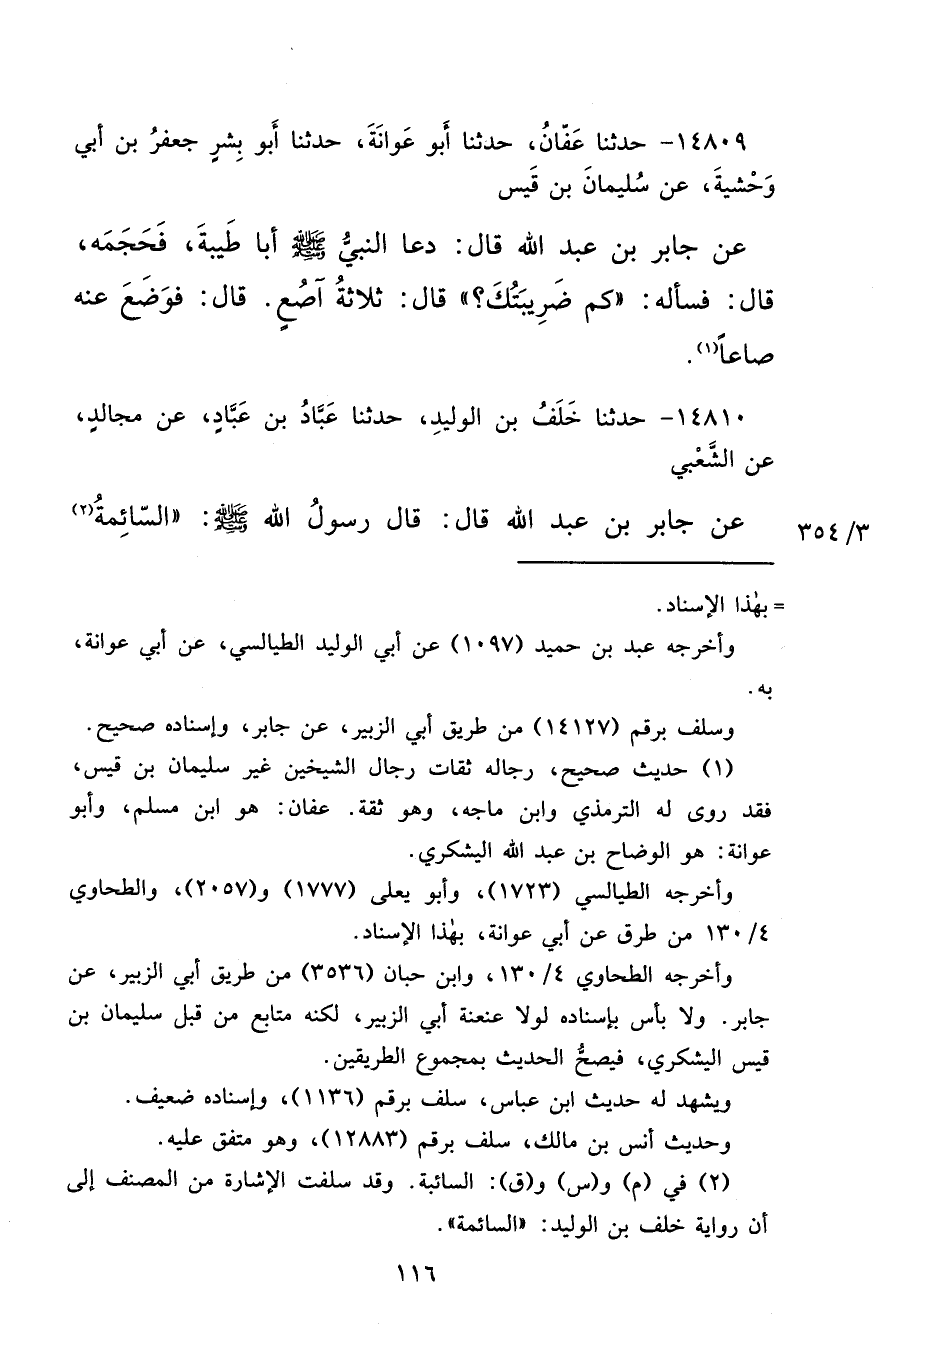 ١٤٨٠٩- حدثنا عَفّانُ، حدثنا أَبو عَوانَةَ، حدثنا أَبو بِشرٍ جعفرُ بن أبي
وَحْشيةَ، عن سُليمانَ بن قَيس
عن جابر بن عبد الله قال: دعا النبيُّ ﷺ أبا طَيبةَ، فَحَجَمَه،
قال: فسأله: «كم ضَرِيبَتُكَ؟» قال: ثلاثةُ آصُعٍ. قال: فوَضَعَ عنه
صاعاً(١).
١٤٨١٠- حدثنا خَلَفُ بن الوليدِ، حدثنا عَبَّادُ بن عَبَّادٍ، عن مجالدٍ،
عن الشَّعْبي
عن جابر بن عبد الله قال: قال رسولُ الله ﷺ: «السّائِمةُ(٢)
٣٥٤/٣
= بهٰذا الإسناد.
وأخرجه عبد بن حميد (١٠٩٧) عن أبي الوليد الطيالسي، عن أبي عوانة،
به.
وسلف برقم (١٤١٢٧) من طريق أبي الزبير، عن جابر، وإسناده صحيح.
(١) حديث صحيح، رجاله ثقات رجال الشيخين غير سليمان بن قيس،
فقد روى له الترمذي وابن ماجه، وهو ثقة. عفان: هو ابن مسلم، وأبو
عوانة: هو الوضاح بن عبد الله اليشكري.
وأخرجه الطيالسي (١٧٢٣)، وأبو يعلى (١٧٧٧) و(٢٠٥٧)، والطحاوي
١٣٠/٤ من طرق عن أبي عوانة، بهٰذا الإسناد.
وأخرجه الطحاوي ١٣٠/٤، وابن حبان (٣٥٣٦) من طريق أبي الزبير، عن
جابر. ولا بأس بإسناده لولا عنعنة أبي الزبير، لكنه متابع من قبل سليمان بن
قيس اليشكري، فيصحُّ الحديث بمجموع الطريقين.
ويشهد له حديث ابن عباس، سلف برقم (١١٣٦)، وإسناده ضعيف.
وحديث أنس بن مالك، سلف برقم (١٢٨٨٣)، وهو متفق عليه.
(٢) في (م) و(س) و(ق): السائبة. وقد سلفت الإشارة من المصنف إلى
أن رواية خلف بن الوليد: «السائمة».
١١٦